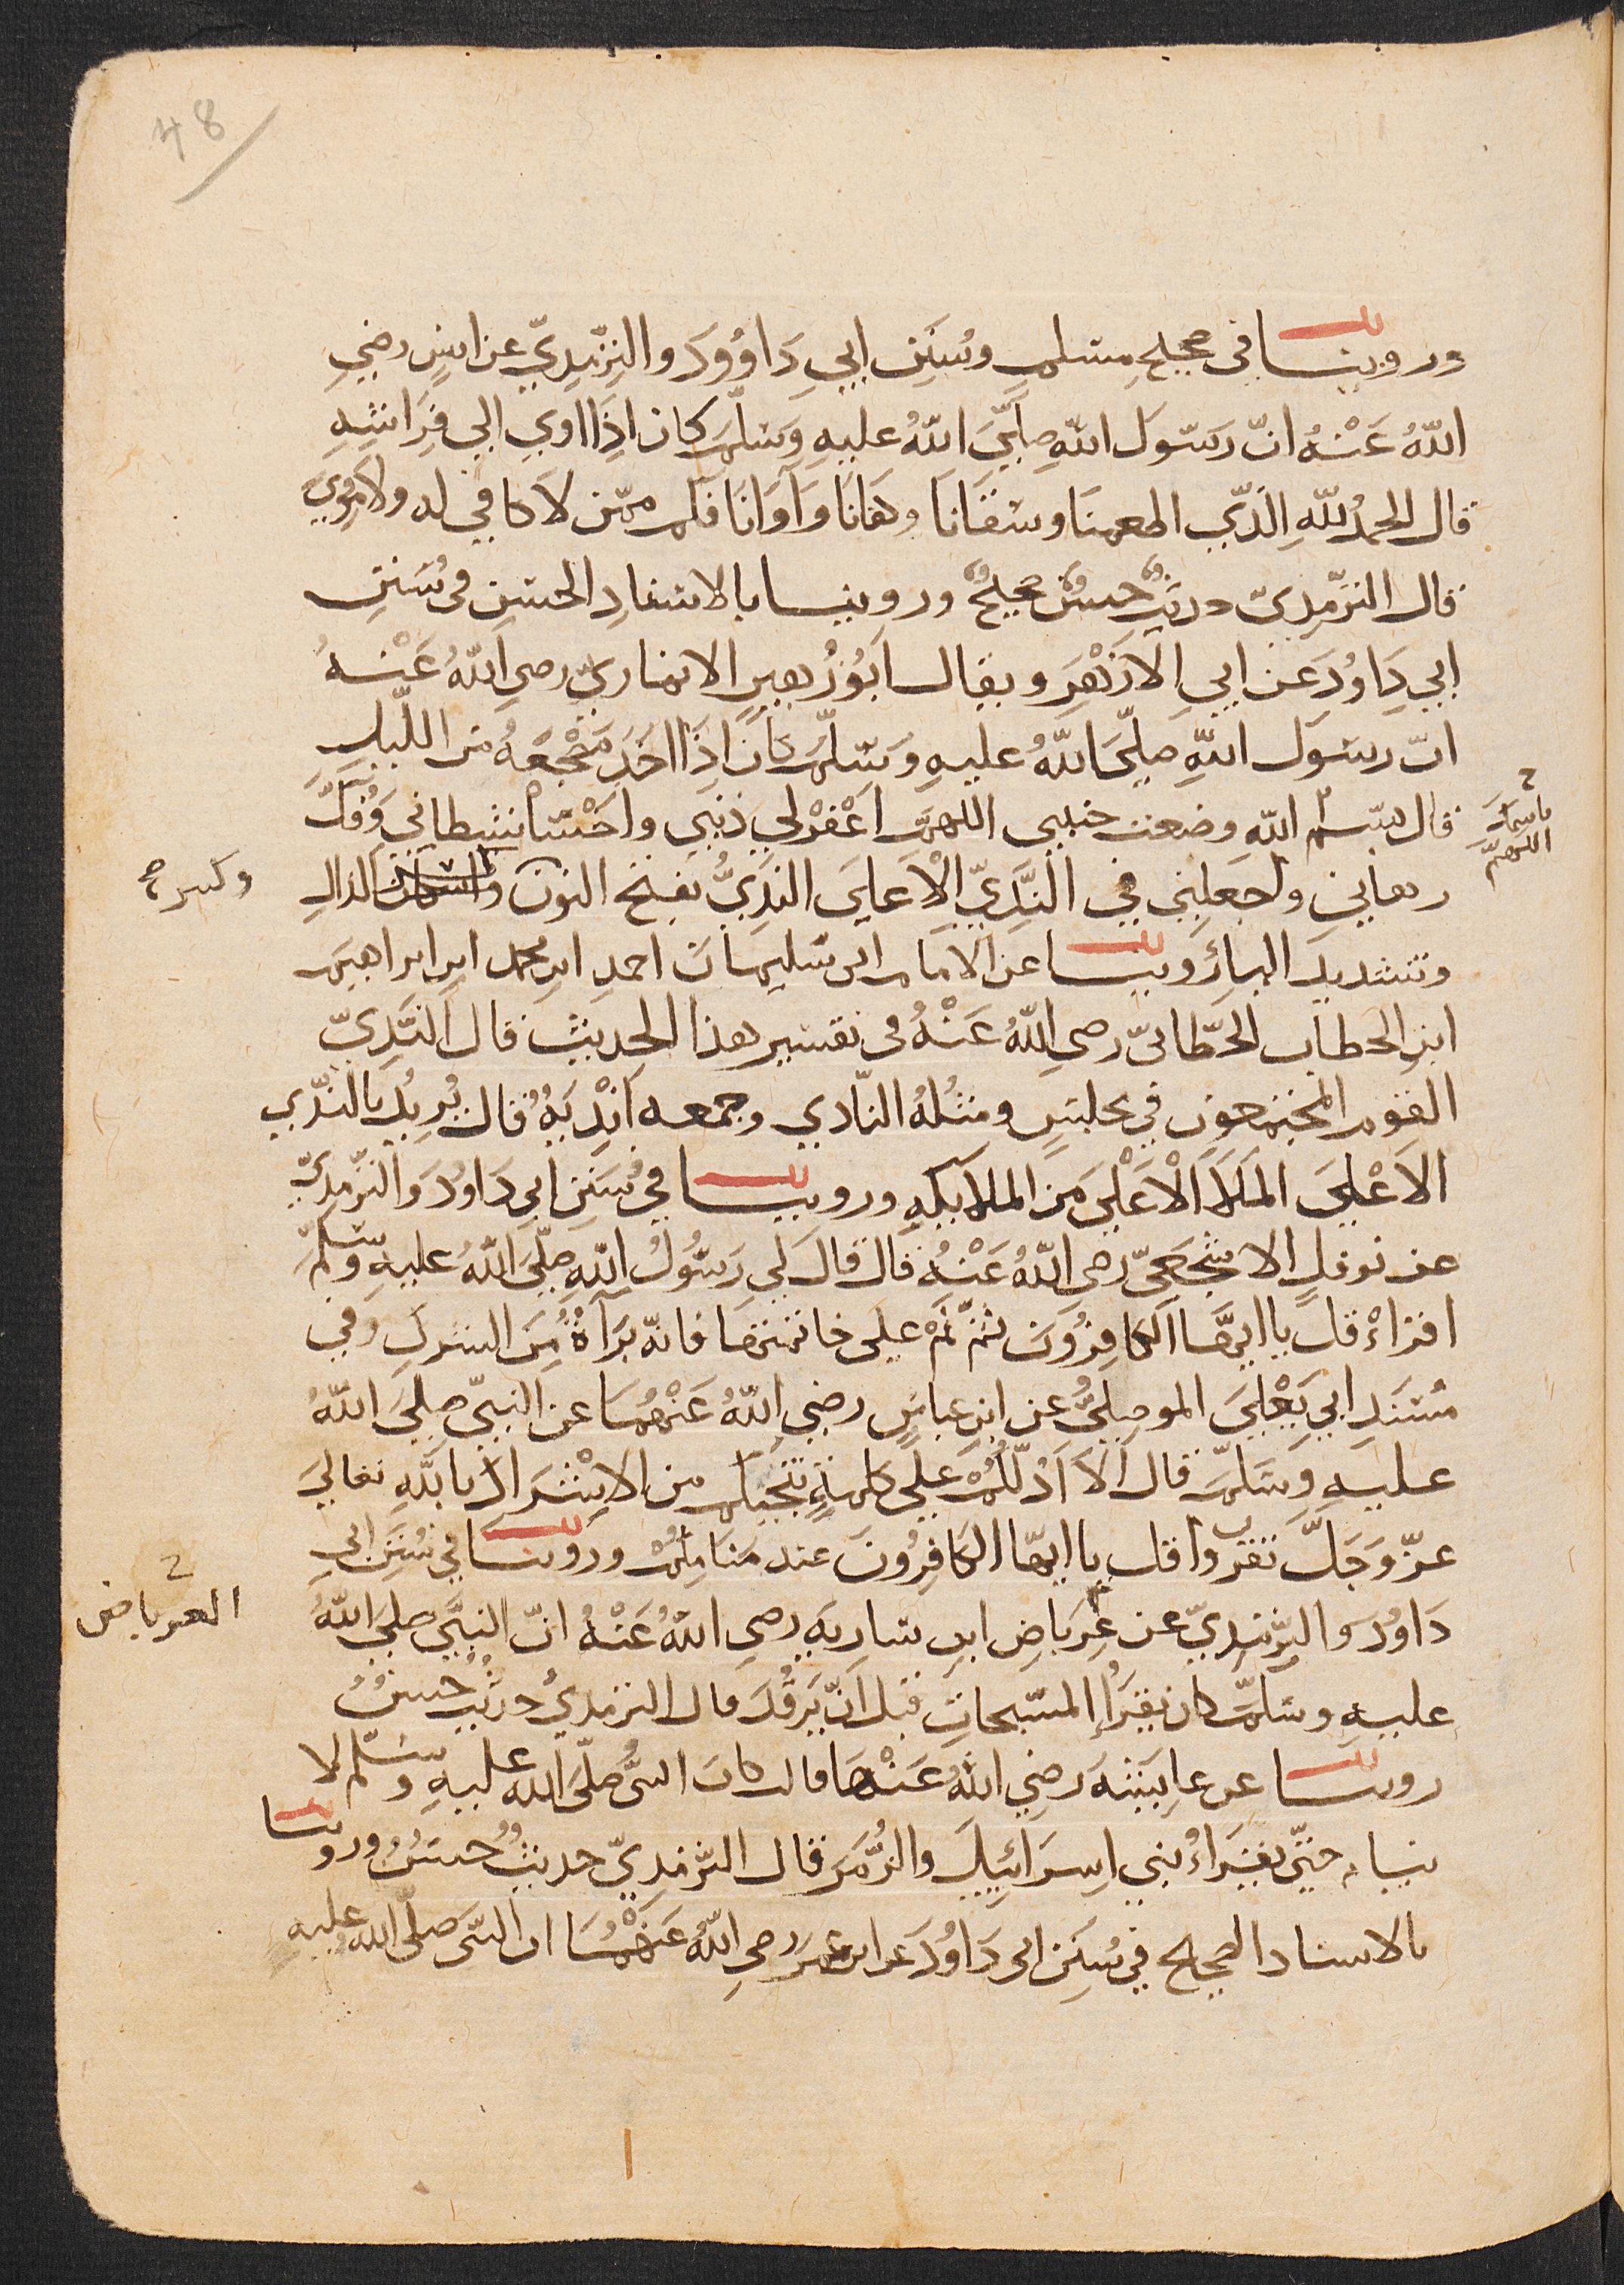 48
وروينا في صحيح مسلم وسُنَنِ ابي دَاوُودَ والتِرّمِدِيّ عن انسٍ رضي
اللّهُ عَنْهُ انّ رسُولَ اللّهِ صلّيَ اللّهُ عليهِ وسَلّمَ كان اذَا اوي الي فِرَاشِهِ
قال الحمدُ للّهِ الّذِي اطعمنَا وسَقَانَا وكفانَا وَآوَانَا فكم ممّن لا كافي له ولا مُووِي
قال الترّمِديّ حديثٌ حسنٌ صحيحٌ وروينا بالاسنادِ الحسَنِ في سُنَنِ
ابي دَاوُدَ عن ابي الازْهَرِ ويقال ابُوزُهيرٍ الانماريّ رضي اللّهُ عَنْهُ
انّ رسُولَ اللّهِ صلّيَ اللّهُ عليهِ وسَلّمَ كانَ اذَا اخَدَ مَضْجَعَهُ من اللّيلِ
قال بسم اللّه وضعت جنبي اللهمّ اغْفرْ لي ذنبي واخْسَأْ شيطاني وَفُكَّ
باسمك
اللهمّ
رهاني واجعلني في النّدِيّ الْاَعليَ النّدِيُّ بفتح النون واسكان الدال
وكسر
وتشديد اليا روينا عن الامام ابي سليمان احمد ابن محمد ابن ابراهيم
ابن الخطاب الخطّابيّ رضي اللّهُ عَنْهُ في تفسير هذا الحديث قال النّدِيّ
القوم المجتمعون في مجلسٍ ومثلهُ النّادي وجمعه اَنْدِيَهٌ قال يُرِيدُ بالنّدِي
الاَعْليَ المَلَا الْاَعْليَ مَن الملايكه وروينا في سُنَنِ ابي دَاوُدَ والتّرمدِيّ
عن نوفلٍ الاشجعيّ رضي اللّهُ عَنْهُ قال قالَ لي رَسُولُ اللّهِ صلّيَ اللّهُ عليهِ وسَلّم
اقراءْ قل يا ايهَّا الكَافِرُونَ ثمّ نَمْ علي خاتمتهَا فانّه بَرَآةٌ مِنَ الشرك وفي
مُسْنَدِ ابي يَعْليَ الموصِليُّ عن ابن عباسٍ رضي اللّهُ عَنْهُمَا عن النبيّ صلّيَ اللّهُ
عليهِ وسَلّمَ قال اَلَا اَدُلّكُمْ علي كلمةٍ تنجيكم من الاِشْرَاك باللّهِ تعاليَ
عزّ وَجَلَّ تقرؤا قل يا ايها الكَافِرُونَ عند مَنَامِكُمْ وروينا في سُنَنِ ابي
دَاوُدَ والتِرّمِدِيّ عن عِرْبَاضِ ابن سَارِيَهِ رضي اللّهُ عَنْهُ انّ النبيَّ صليَ اللّهُ
العرباض
عليهِ وسَلّمَ كان يقرَأُ المسبّحاتِ قبل انّ يَرقُدَ قال الترمديُّ حديثٌ حسنٌ
روينا عن عايِشَهَ رَضِيَ اللّهُ عَنْهَا قالت كان النبيُّ صَلّيَ اللّه عليهِ وسَلّم لا
ينام حتّي يقرَاءُ بني اِسرَائِيلَ والزُّمَرَ قال التّرمِديّ حديثٌ حسنٌ وروينا
بالاسناد الصحيح في سُنَنِ ابي دَاوُدَ عن ابن عمَرَ رضي اللّهُ عَنْهُمَا ان النبيَّ صَلّيَ اللّه عليهِ